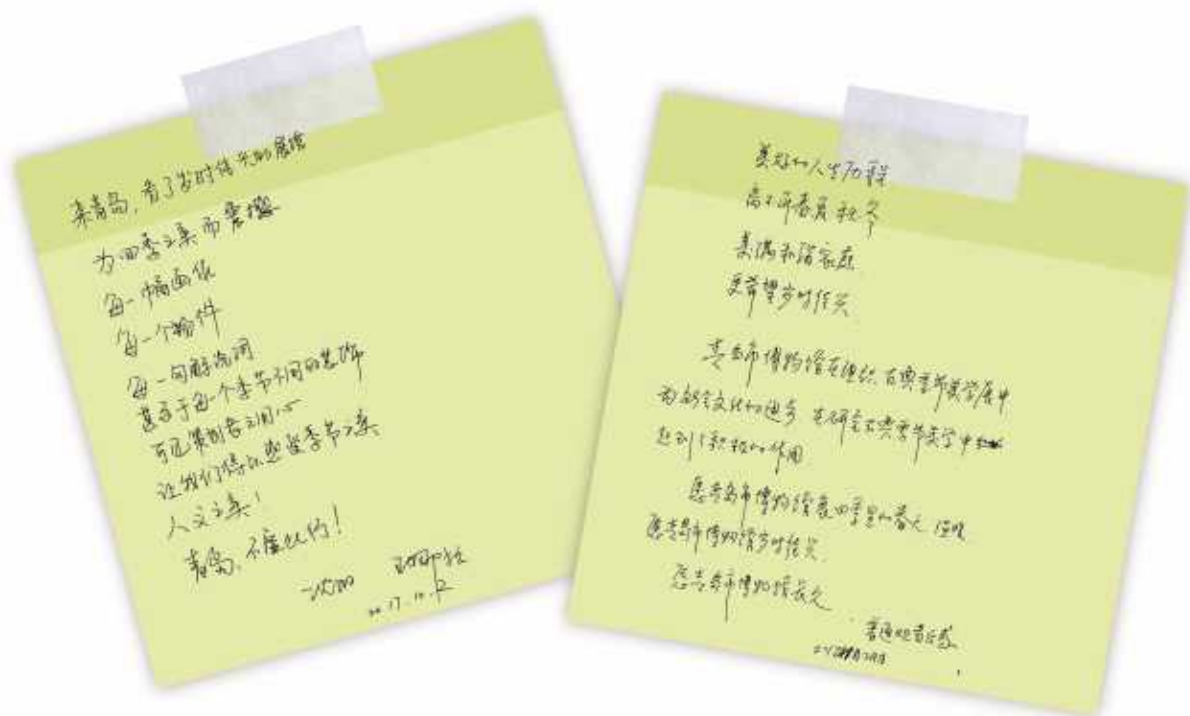 来青岛，看了岁时佳兴的展馆
为四季之美而震撼
每一幅画作
每一个物件
每一句解说词
甚至于每一个季节不同的装饰
可见策划者之用心
让我们得以感受季节之美
人文之美！
青岛，不虚此行！
2017.10.2
美好的人生历程
离不开春夏秋冬
美满和谐家庭
更希望岁时佳兴
青岛市博物馆在组织古典季节美学展中
为社会文化的进步 在研究古典季节美学中
起到了积极的作用
愿青岛市博物馆是四季里的春天 温暖
愿青岛市博物馆岁时佳兴
愿青岛市博物馆长久
普通观者